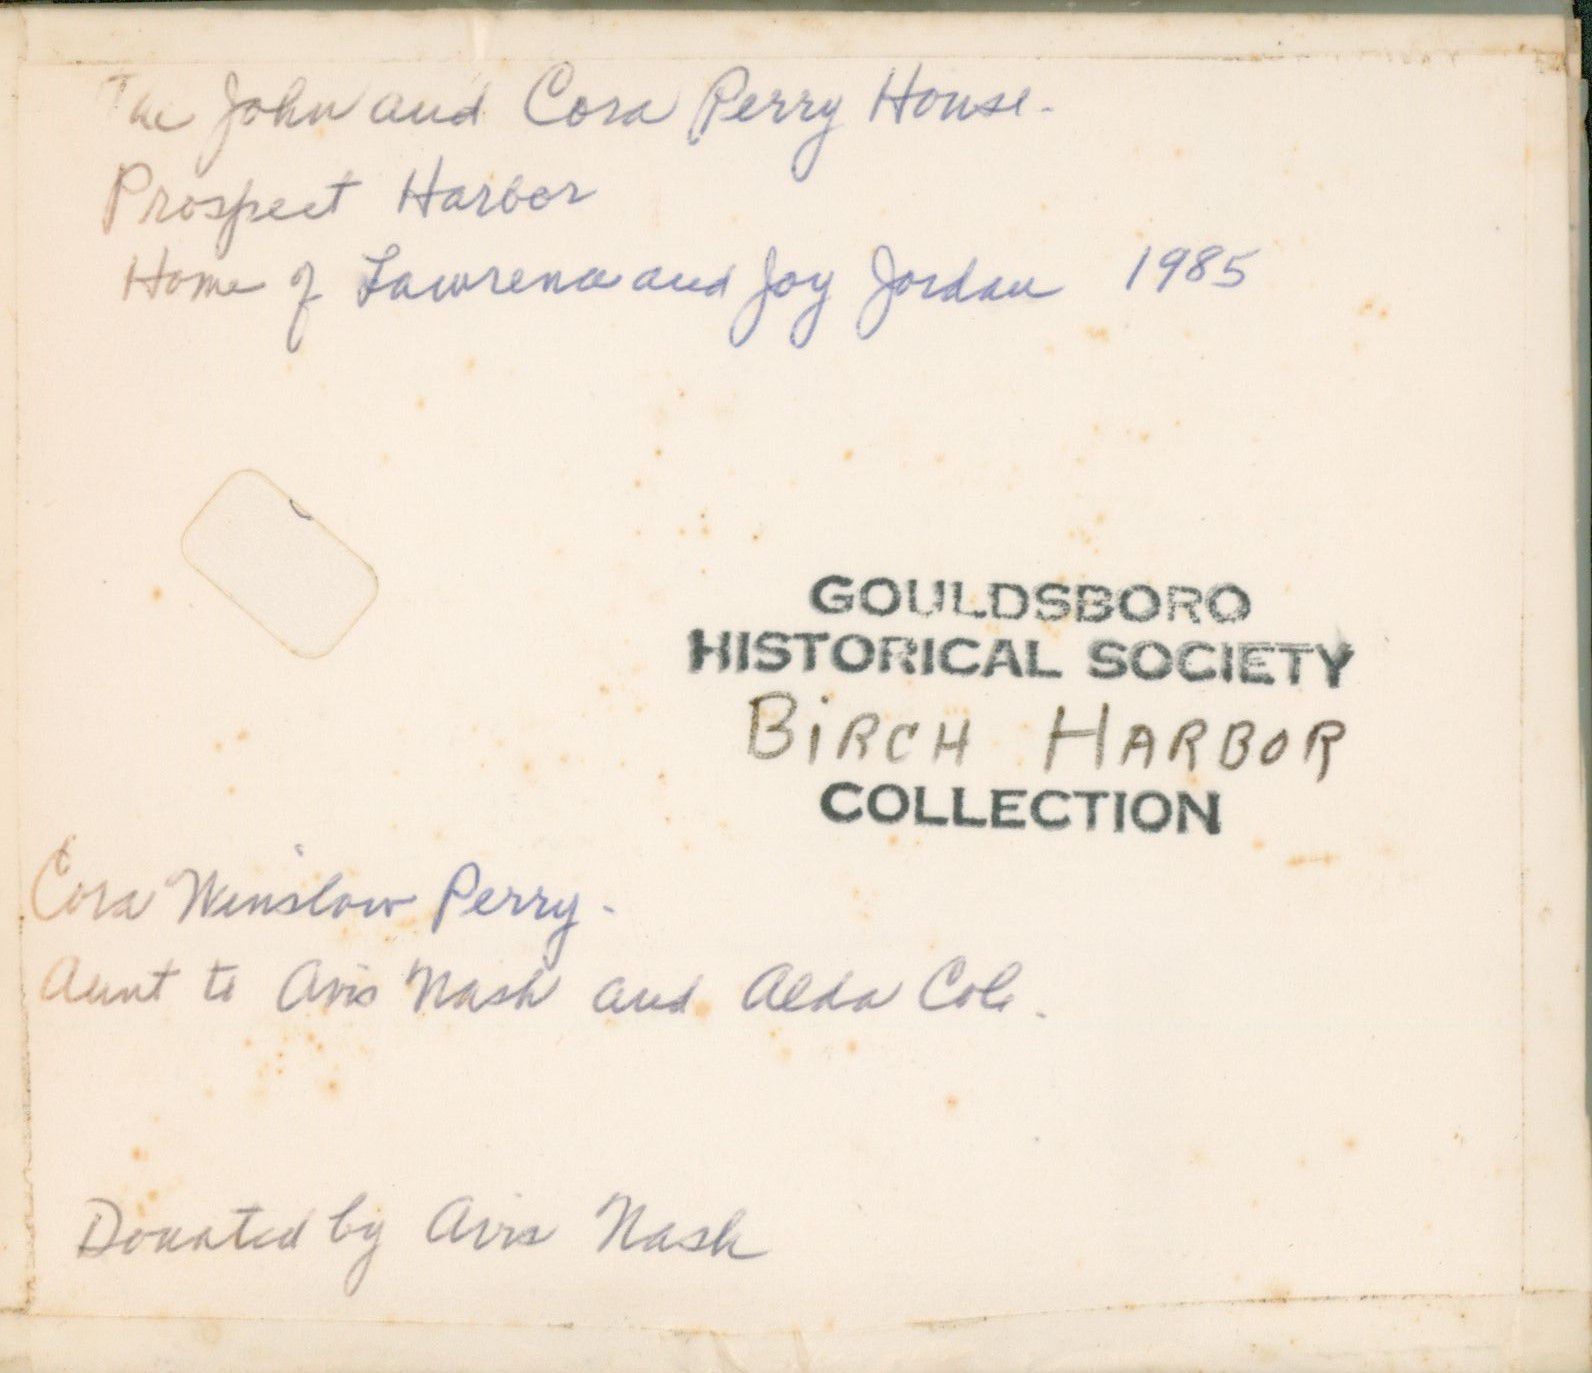 The John and Cora Perry House.
Prospect Harbor
Home of Lawrence and Joy Jordan 1985
GOULDSBORO
HISTORICAL SOCIETY
BiRCH HARBOR
COLLECTION
Cora Winslow Perry.
Aunt to Avis Nash and Alda Cole.
Donated by Avis Nash